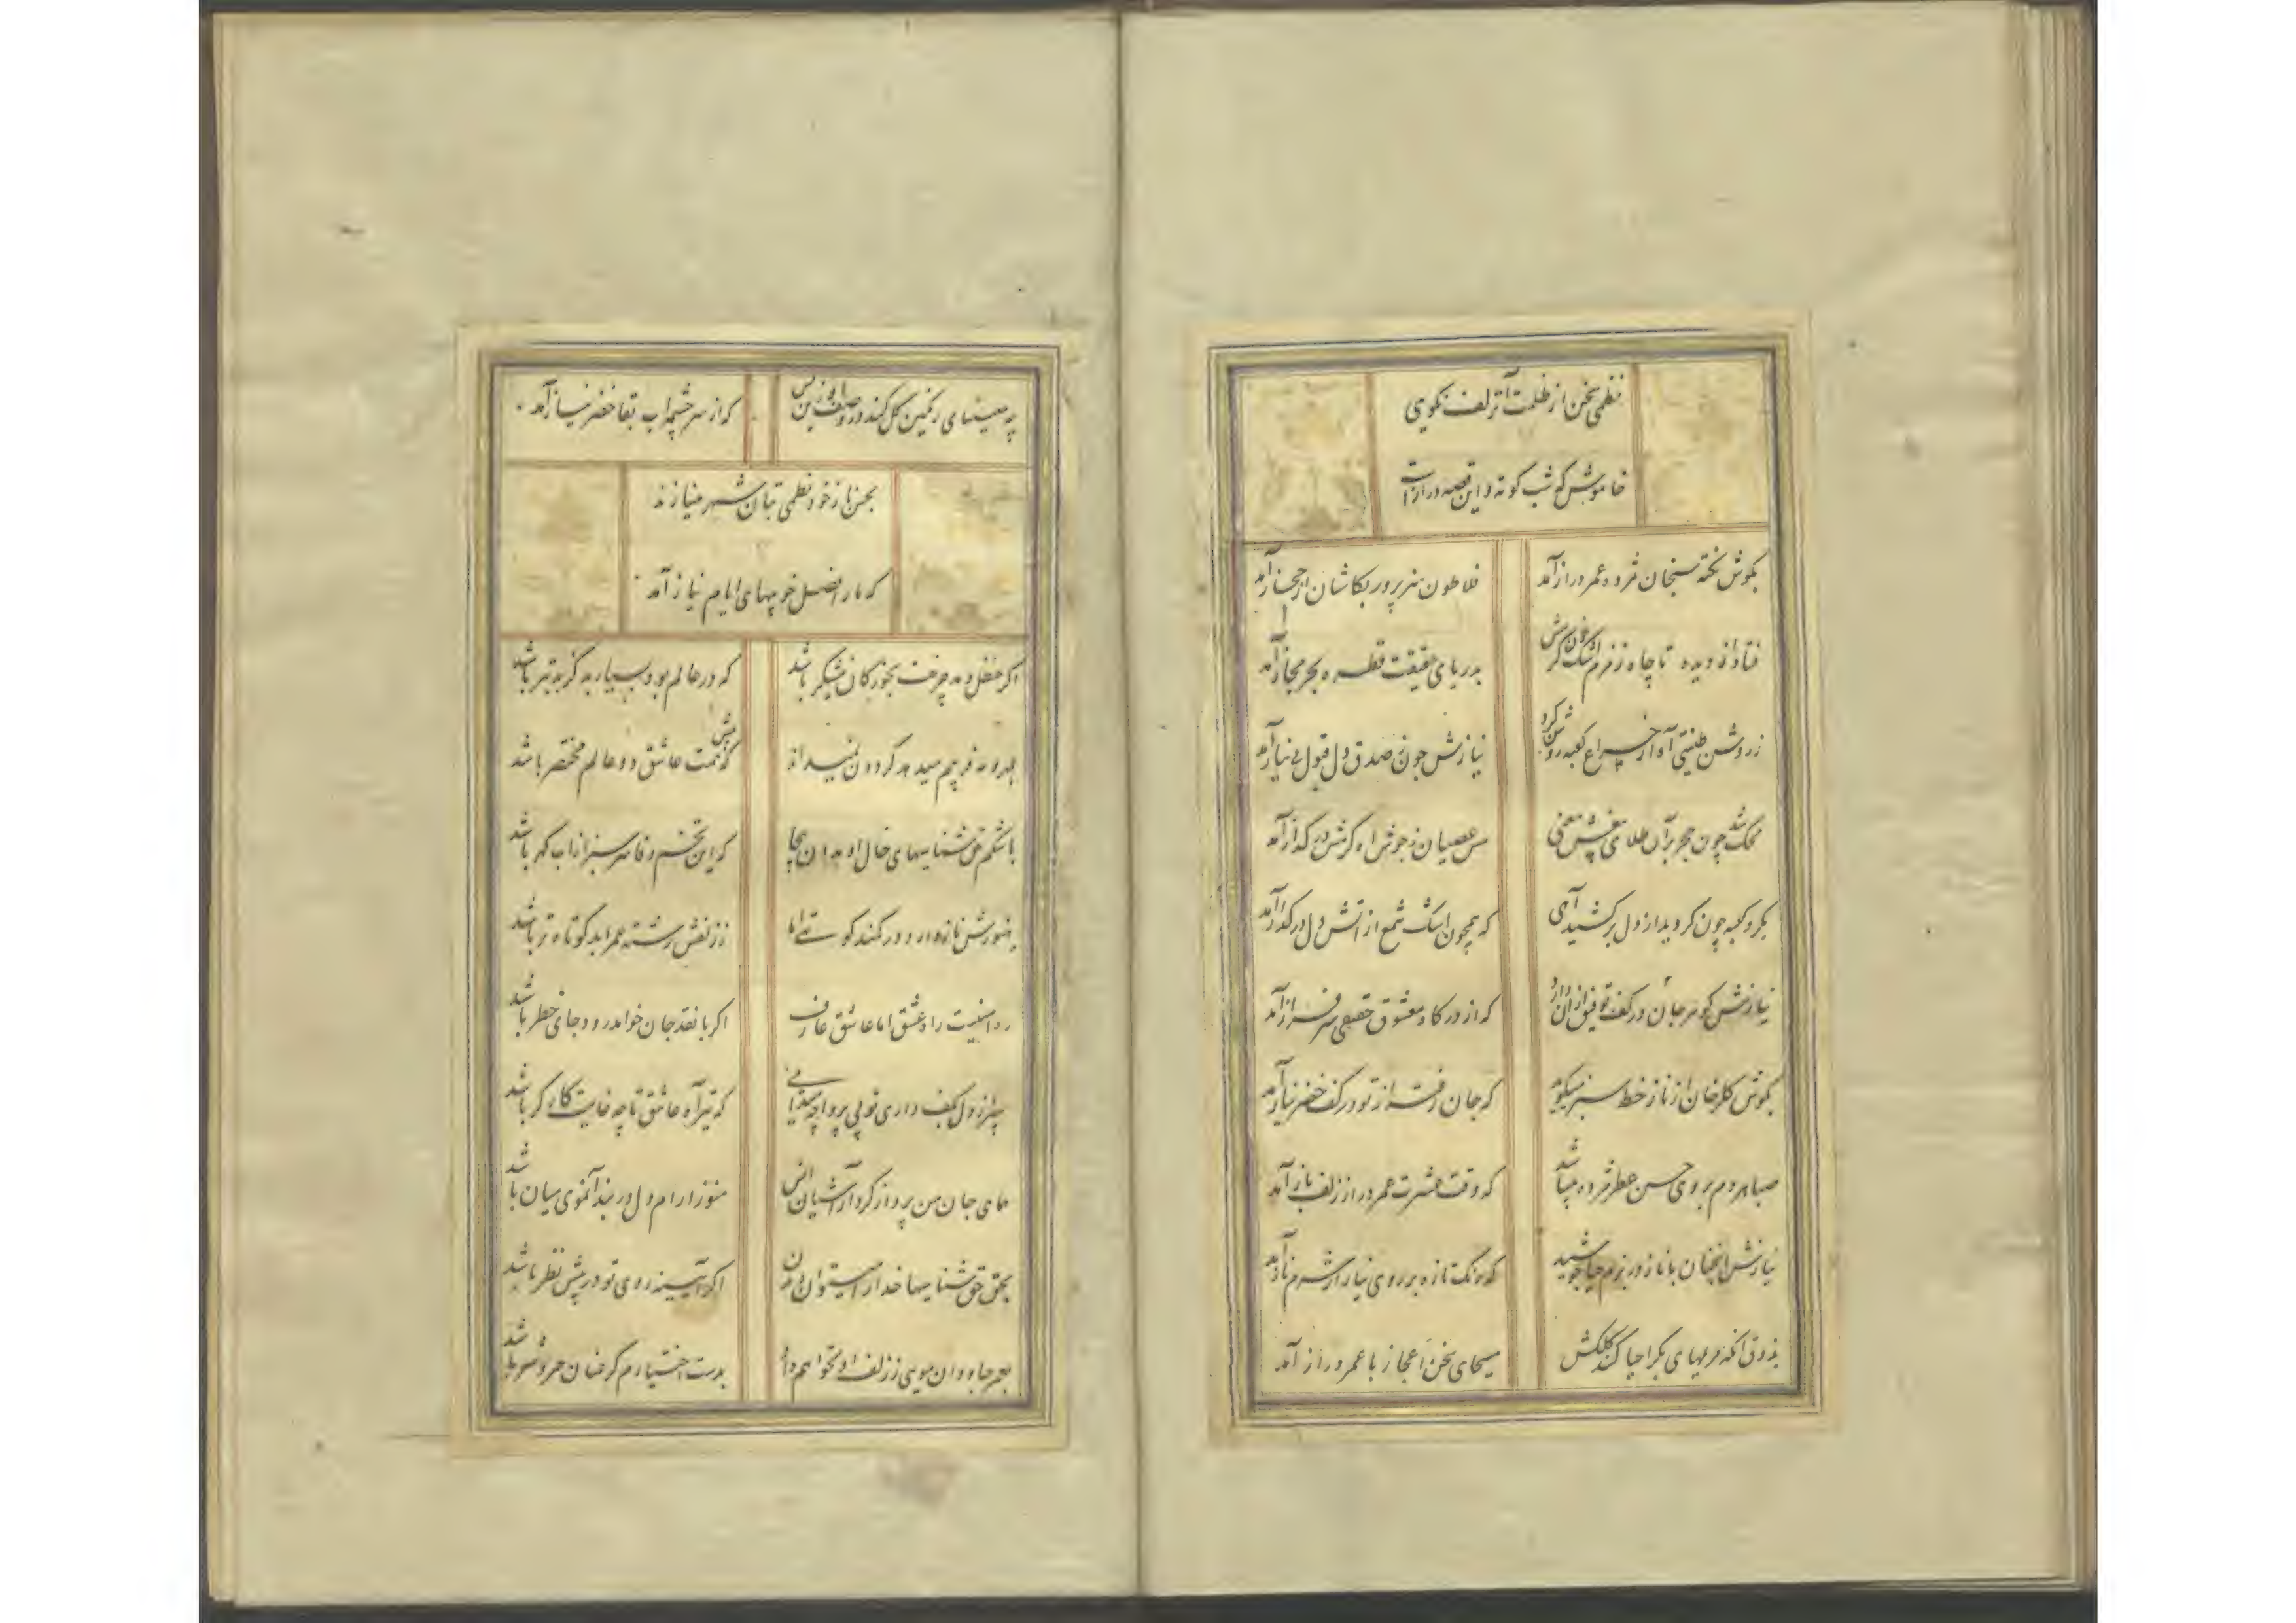 نظمی سخن از ظلمت آن زلف نکویی
خاموش که شب کوته و این قصه درازست
بگوش نکته سنجان مژده عمر دراز آمد
فلاطون هنرپرور بکاشان از حجاز آمد
فتاد دیده تا چاه زمزم اشک
بدریای حقیقت قطره بحر مجاز آمد
ز روشن طینتی آه از چراغ کعبه روشن کرد
نیازش چون ز صدق دل قبول بی نیاز آمد
محک شد چون حجر بر آن طلای
مس عصیان ز جوش در گداز آمد
بگرد کعبه چون گردید از دل برکشید آهی
که همچون اشک شمع از آتش دل در گداز آمد
نیازش گوهر جان در کف توفیق از آن دارد
که از درگاه معشوق حقیقی سرفراز آمد
بگوش گلرخان از ناز خط سبز میگوید
که جان رفته از تو در کف خضر نیاز آمد
صبا هر دم بروی حسن عطر مژده میپاشد
که وقت عشرت عمر دراز زلف باز آمد
نیازش آنچنان با ناز در بزم حیا جوشید
که رنگ تازه بر روی نیاز از شرم ناز آمد
بذوق آنکه مریمهای بکر احیا کند کلکش
مسیحای سخن اعجاز با عمر دراز آمد
چه رنگین گل کند در وصف
که از سرچشمه آب بقا خضر نیاز آمد
بحسن ناز خود نظمی بتان شهر مینازند
که ما را فصل خوبیهای ایام نیاز آمد
اگر حنظل دهد چرخت بخور کان نیشکر باشد
که در عالم بود بسیار بد کز بد بتر باشد
بهر دو نه فریبم میدهد گردون نمیداند
که پیش همت عاشق دو عالم مختصر باشد
حق شناسیهای خال او
که این تخم وفا سرسبز از آب گهر باشد
هنورش ناز دارد در کمند
ز زلفش رشته عمر ابد کوتاه تر باشد
ره امنیت راه عشق اما عاشق عارف
اگر با نقد جان خواهد رود جای خطر باشد
چرا ز دل بکف داری تو بی پروا چه میدانی
که تیر آه عاشق تا چه غایت کارگر باشد
همای جان من پرواز کرد از آشیان انس
هنوز آرام دل در بند آن موی میان باشد
بحق حق شناسیها خدا را میتوان دیدن
اگر آیینه روی تو در پیش نظر باشد
بعمر جاودان مویی ز زلف او نخواهم داد
بدست اختیارم گر عنان خیر و شر باشد